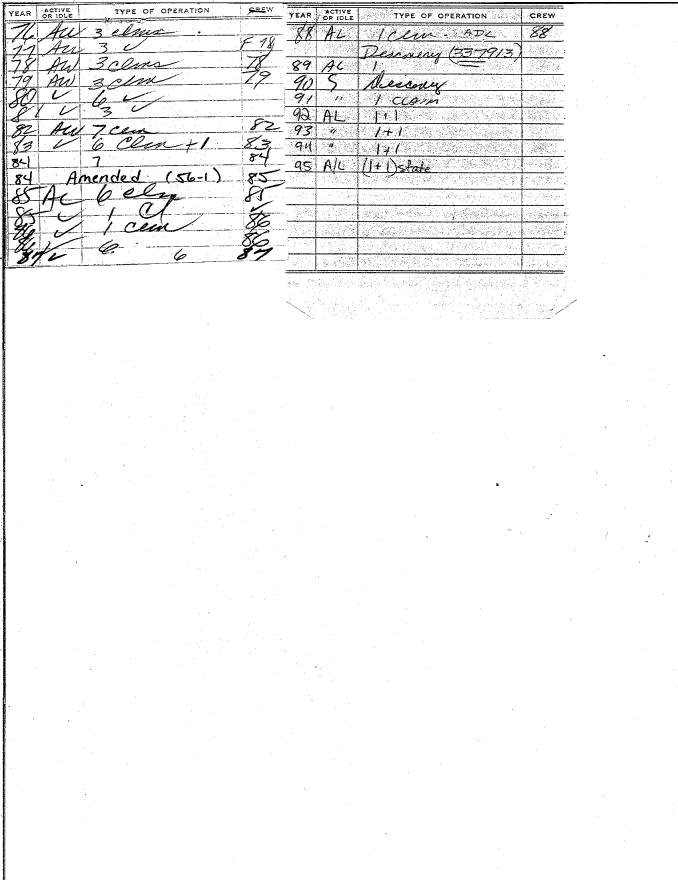 YEAR ACTIVE OR IDLE TYPE OF OPERATION CREW
76 AW 3 clms
77 AW 3 ✓ F 78
78 AW 3 clms 78
79 AW 3 clm 79
80 ✓ 6 ✓
81 ✓ 3 ✓
82 AW 7 clm 82
83 ✓ 6 Clm +1 83
84 7 84
84 Amended (56-1) 85
85 AL 6 clm 85
85 ✓ 1 Cl ✓
86 ✓ 1 clm 86
86 ✓ 6 86
87 ✓ 6 87
YEAR ACTIVE OR IDLE TYPE OF OPERATION CREW
88 AL 1 clm - ADL 88
Descovery (337913)
89 AL 1
90 S Descovery
91 " 1 claim
92 AL 1+1
93 " 1+1
94 " 1+1
95 A/L (1+1) state